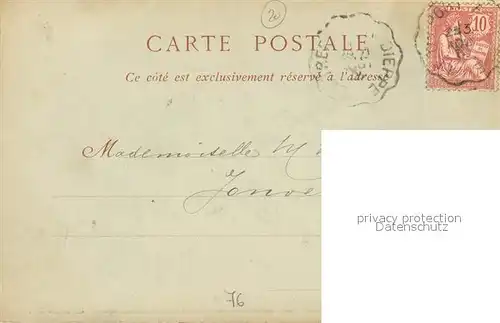 20
CARTE POSTALE
Ce côté est exclusivement réservé à l'adresse
10
DIEPPE
Mademoiselle M
privacy protection
Datenschutz
76